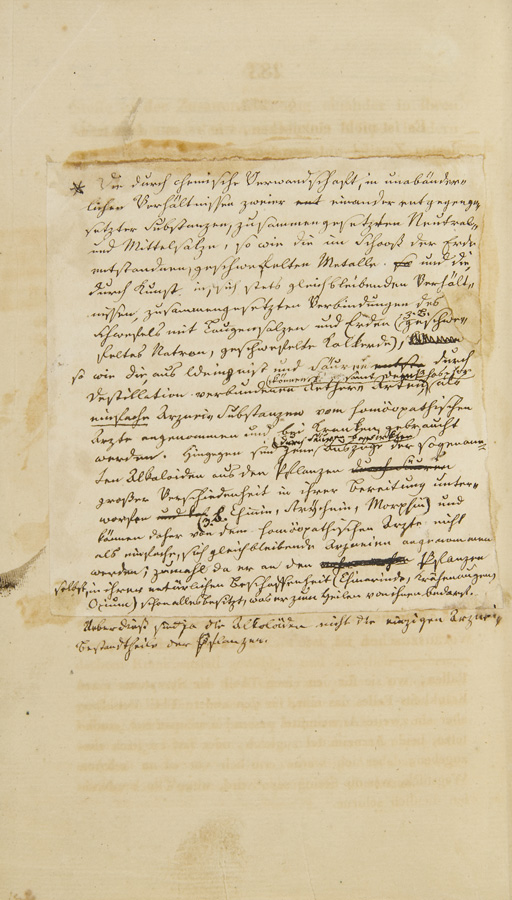 * Die durch chemische Verwandschaft, in unabänder-
lichen Verhältnissen zweier ent einander entgegenge-
setzter Substanzen, zusammengesetzten Neutral-
und Mittelsalze, so wie die im Schooß der Erde
entstandnen, geschwefelten Metalle. und die,
durch Kunst in, sich stets gleichbleibenden Verhält-
nissen, zusammengesetzten Verbindungen des
Schwefels mit Laugensalzen und Erden (z.B. geschwe-
feltes Natron, geschwefelte Kalkerde),
so wie die, aus Weingeist und Säuren durch
Destillation verbundenen Aether Arten können als
einfache Arznei-Substanzen vom homöopathischen
Arzte angenommen und bei Kranken gebraucht
werden. Hingegen sind jene durch Säuren bewirkten Auszüge der sogenann-
ten Alkaloiden aus den Pflanzen durch Säuren
großer Verschiedenheit in ihrer Bereitung unter-
worfen (z.B. Chinin, Strychnin, Morphin) und
können daher von dem homöopathischen Arzte nicht
als einfache, sich gleichbleibende Arzneien angenommen
werden; zumahl da er an den Pflanzen
selbst, in ihrer natürlichen Beschaffenheit (Chinarinde, Krähenaugen,
Opium) schon alles besitzt, was er zum Heilen von ihnen bedarf.
Ueberdieß sind ja die Alkaloiden nicht die einzigen Arznei-
bestandtheile der Pflanzen.